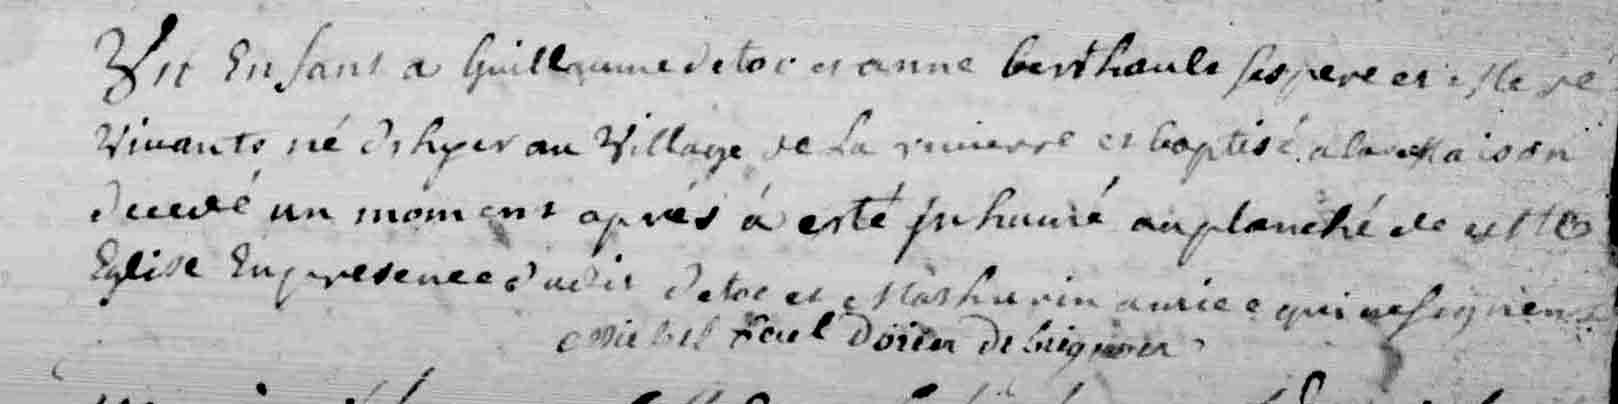 Un Enfant a Guillaume detoc et anne berthoult ses pere et Mere
Vivants né d'hyer au Village de La riviere et baptisé a la Maison
decedé un moment aprés á esté inhumé au planché de cette
Eglise En presence dudit detoc et Mathurin auriee qui ne signent
Michel Feul doien de